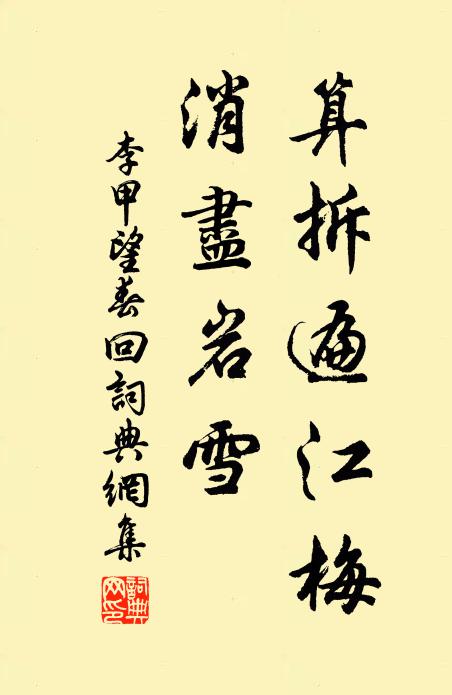 算拆遍江梅
消盡岩雪
李甲望春回詞典網集
詞典網印